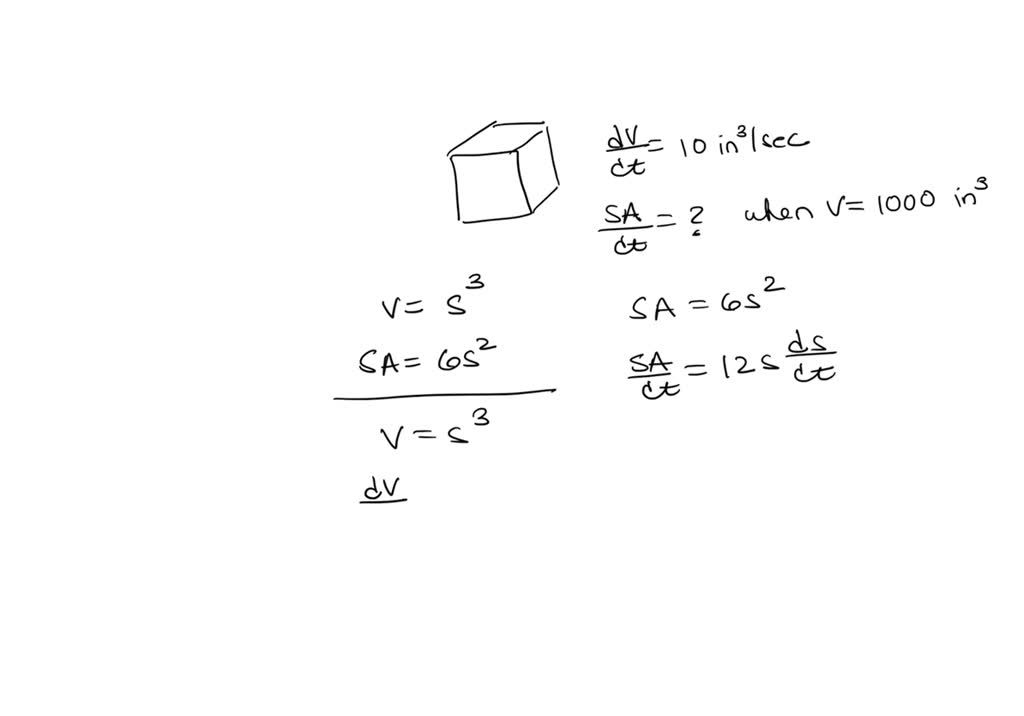 dV/dt = 10 in³/sec
SA/dt = ? when V = 1000 in³
V = s³
SA = 6s²
SA = 6s²
SA/dt = 12s ds/dt
V = s³
dV